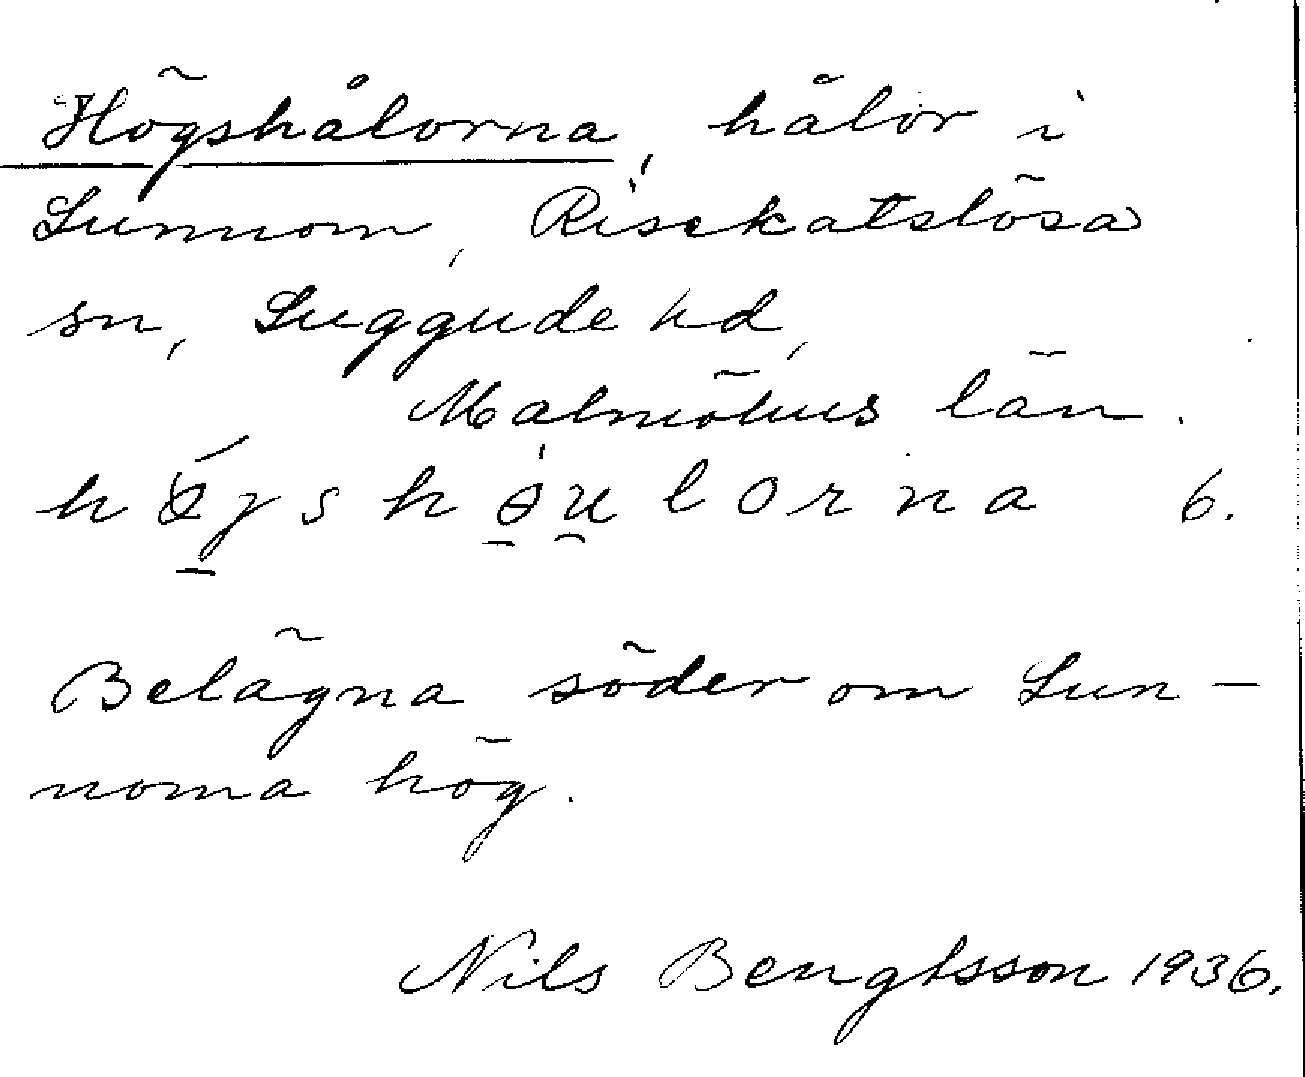 Högshålorna, hålor i
Sunnom, Risekatslösa
sn, Luggude hd,
Malmöhus län.
hǿ̱γshɵ̱́u̯lorna 6.
Belägna söder om Sun-
noma hög.
Nils Bengtsson 1936.